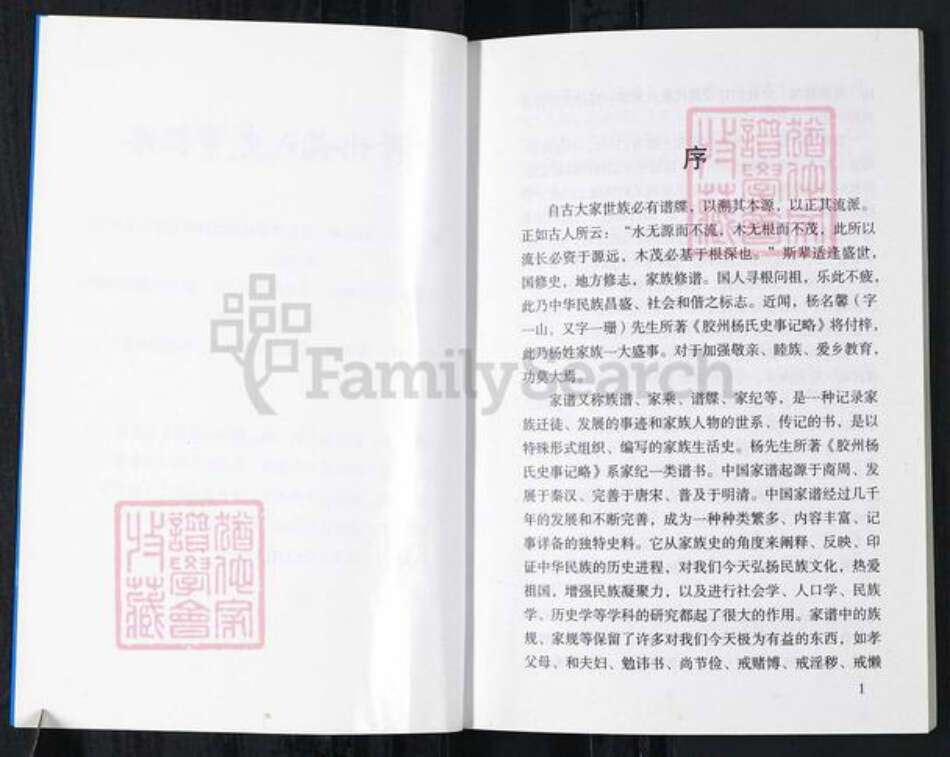 序
自古大家世族必有谱牒，以溯其本源，以正其流派。
正如古人所云：“水无源而不流，木无根而不茂，此所以
流长必资于源远，木茂必基于根深也。”斯辈适逢盛世，
国修史，地方修志，家族修谱。国人寻根问祖，乐此不疲，
此乃中华民族昌盛、社会和偕之标志。近闻，杨名馨（字
一山，又字一珊）先生所著《胶州杨氏史事记略》将付梓，
此乃杨姓家族一大盛事。对于加强敬亲、睦族、爱乡教育，
功莫大焉。
家谱又称族谱、家乘、谱牒、家纪等，是一种记录家
族迁徒、发展的事迹和家族人物的世系、传记的书，是以
特殊形式组织、编写的家族生活史。杨先生所著《胶州杨
氏史事记略》系家纪一类谱书。中国家谱起源于南周、发
展于秦汉、完善于唐宋、普及于明清。中国家谱经过几千
年的发展和不断完善，成为一种种类繁多、内容丰富、记
事详备的独特史料。它从家族史的角度来阐释、反映、印
证中华民族的历史进程，对我们今天弘扬民族文化，热爱
祖国，增强民族凝聚力，以及进行社会学、人口学、民族
学、历史学等学科的研究都起了很大的作用。家谱中的族
规、家规等保留了许多对我们今天极为有益的东西，如孝
父母、和夫妇、勉讳书、尚节俭、戒赌博、戒淫秽、戒懒
1
FamilySearch
譜學會
收藏